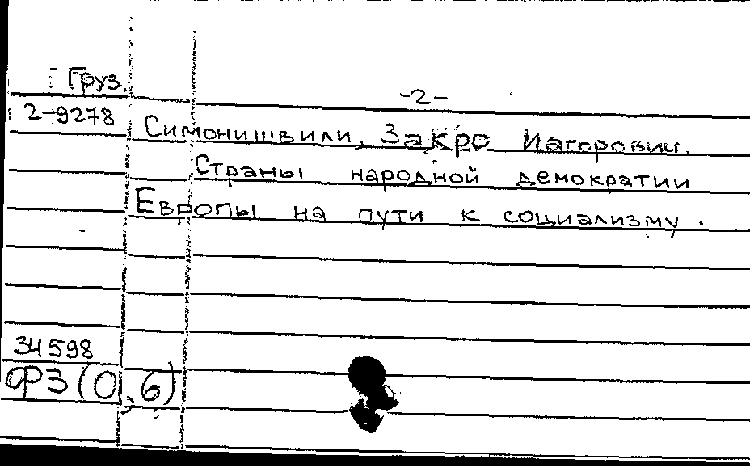 Груз.
-2-
2-9278
Симонишвили, Закро Иагорович.
Страны народной демократии
Европы на пути к социализму.
34598
ФЗ(0,6)